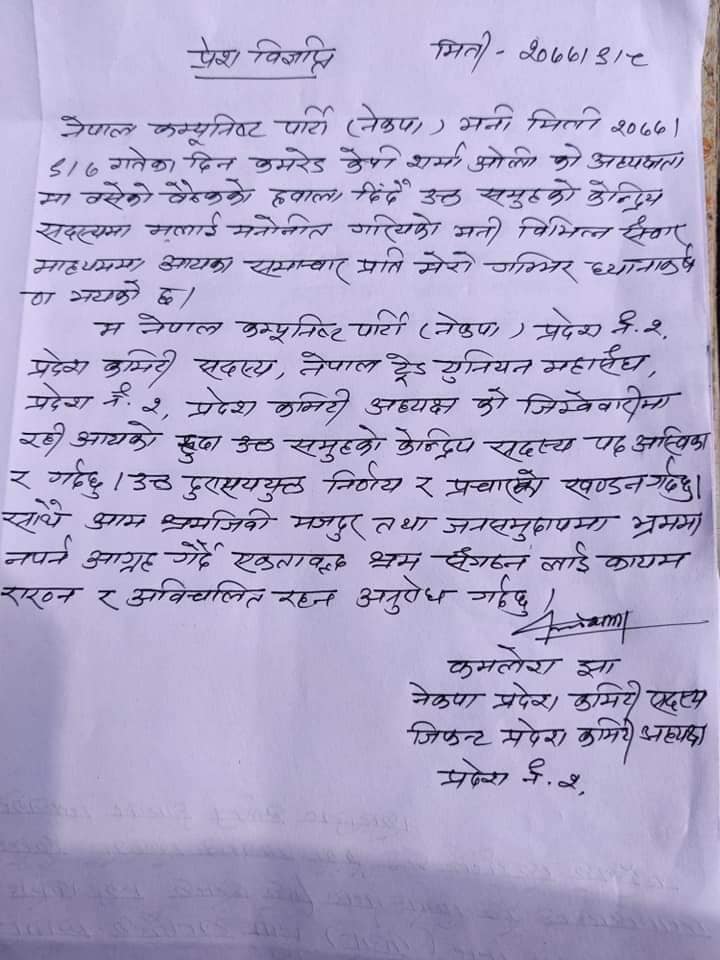 प्रेश विज्ञप्ति मिती - २०७७।९।८
नेपाल कम्यूनिष्ट पार्टी (नेकपा) भनी मिती २०७७।
९।७ गतेका दिन कमरेड केपी शर्मा ओली को अध्यक्षता
मा वसेको वैठकको हवाला दिदै उक्त समुहको केन्द्रिय
सदस्यमा मलाई मनोनीत गरियको भनी विभिन्न संचार
माध्यममा आयका समाचार प्रति मेरो गम्भिर ध्यानाकर्ष
ण भयको छ।
म नेपाल कम्यूनिष्ट पार्टी (नेकपा) प्रदेश नं. २,
प्रदेश कमिटी सदस्य, नेपाल ट्रेड युनियन महासंघ,
प्रदेश नं. २, प्रदेश कमिटी अध्यक्ष को जिम्वेवारीमा
रही आयको हुदा उक्त समुहको केन्द्रिय सदस्य पद अस्विका
र गर्दछु। उक्त दुरासययुक्त निर्णय र प्रचारको खण्डन गर्दछु।
साथै आम श्रमजिवी मजदुर तथा जनसमुदायमा भ्रममा
नपर्न आग्रह गर्दै एकतावद्ध श्रम संगठन लाई कायम
राख्न र अविचलित रहन अनुरोध गर्दछु।
कमलेश झा
नेकपा प्रदेश कमिटी सदस्य
जिफन्ट प्रदेश कमिटी अध्यक्ष
प्रदेश नं. २,